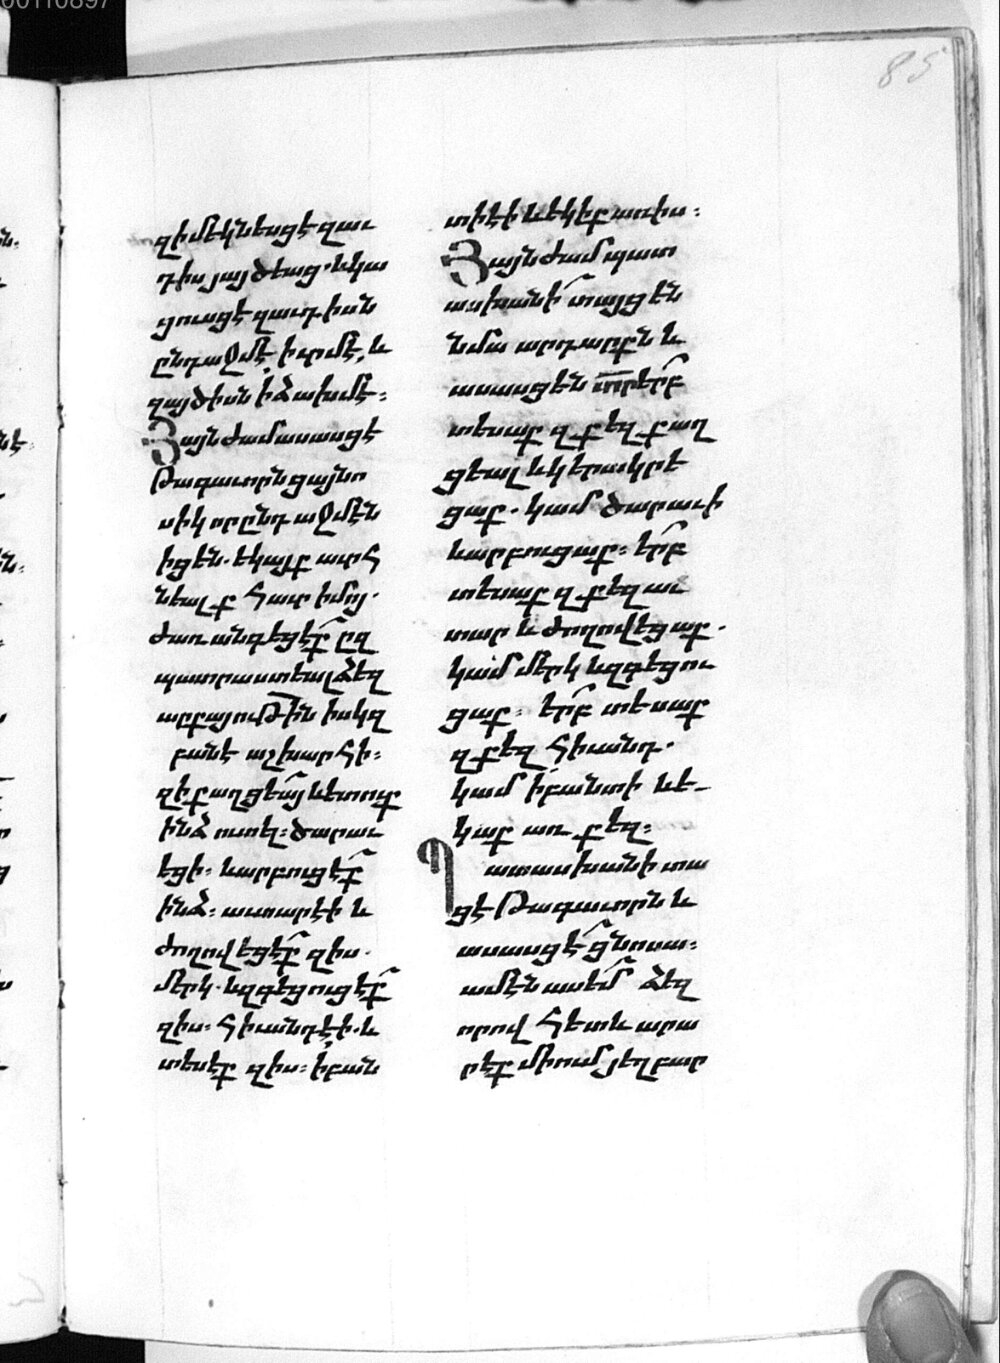 85
զի մեկնեսցէ զաւ
դիս յայծեաց. և կա
ցուսցէ զաւդիսն
ընդ աջմէ իւրմէ, և
զայծիսն ի ձախմէ։
Յայնժամ ասասցէ
թագաւորն ցայնո
սիկ որ ընդ աջմէն
իցեն. եկայք աւրհ
նեալք հաւր իմոյ.
ժառանգեցէ՜ք ըզ
պատրաստեալ ձեզ
արքայութի՜ն իսկզ
բանէ աշխարհի։
զի քաղցեա՜յ և ետուք
ինձ ուտել։ ծարաւ
եցի։ և արբուցէ՜ք
ինձ։ աւտար էի և
ժողովեցէ՜ք զիս.
մերկ. և զգեցուցէ՜ք
զիս։ հիւանդ էի. և
տեսէք զիս։ ի բան
տի էի և եկիք առ իս։
Յայնժամ պատ
ասխանի՜ տայցեն
նմա արդարքն և
ասասցեն տր երբ
տեսաք զքեզ քաղ
ցեալ և կերակրե
ցաք. կամ ծարաւի
և արբուցաք։ երբ
տեսաք զքեզ աւ
տար և ժողովեցաք.
կամ մերկ և զգեցու
ցաք։ երբ տեսաք
զքեզ հիւանդ.
կամ ի բանտի և ե_
կաք առ քեզ։
Պատասխանի տա
ցէ թագաւորն և
ասասցէ ցնոսա։
ամէն ասեմ ձեզ
որով հետև արա
րէք միում յեղբար